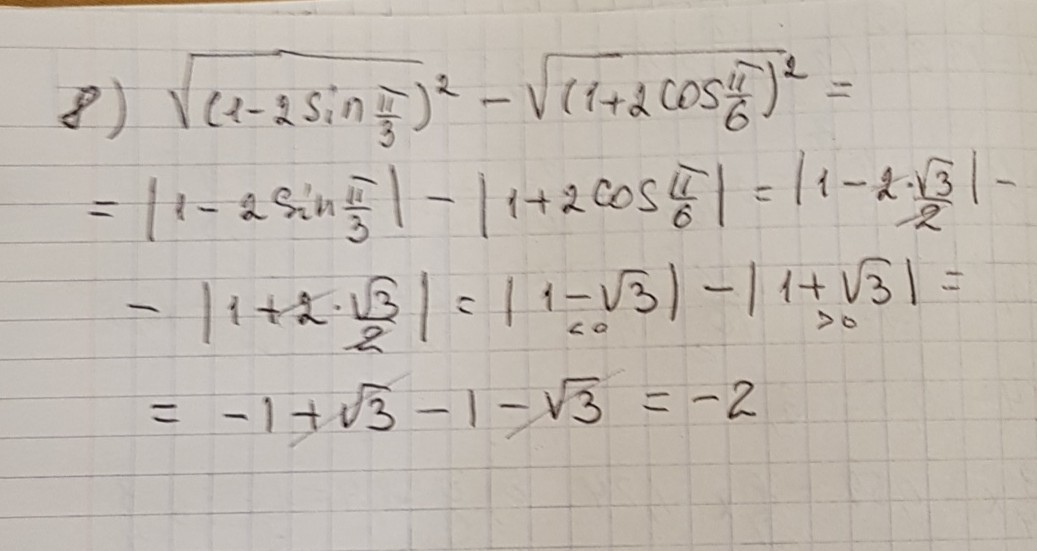 8) √(1-2 sin π/3)² - √(1+2 cos π/6)² =
= |1 - 2 sin π/3| - |1+2 cos π/6| = |1 - 2·√3/2| -
- |1+2·√3/2| = |1-√3| - |1+√3| =
<0 >0
= -1+√3 -1 -√3 = -2